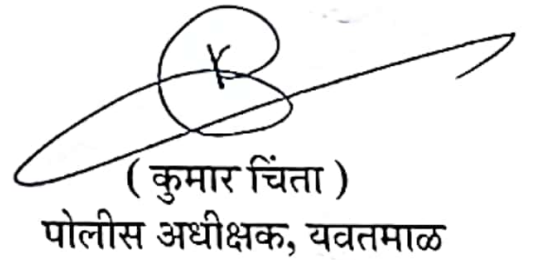 ( कुमार चिंता )
पोलीस अधीक्षक, यवतमाळ